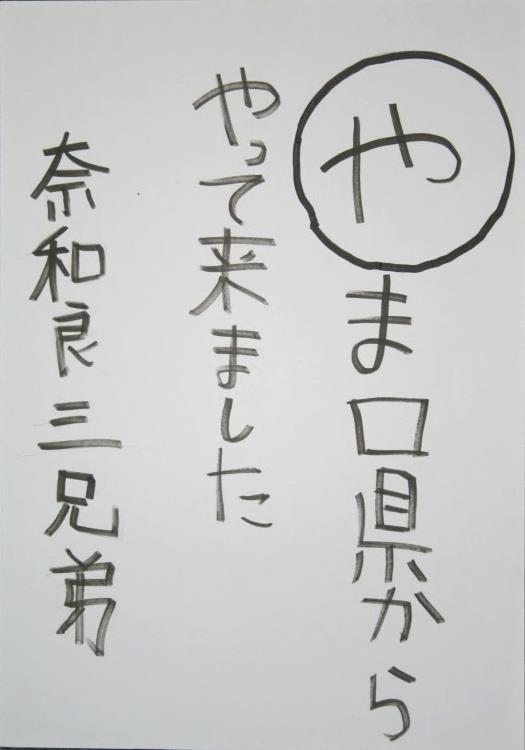 やま口県から
やって来ました
奈和良三兄弟